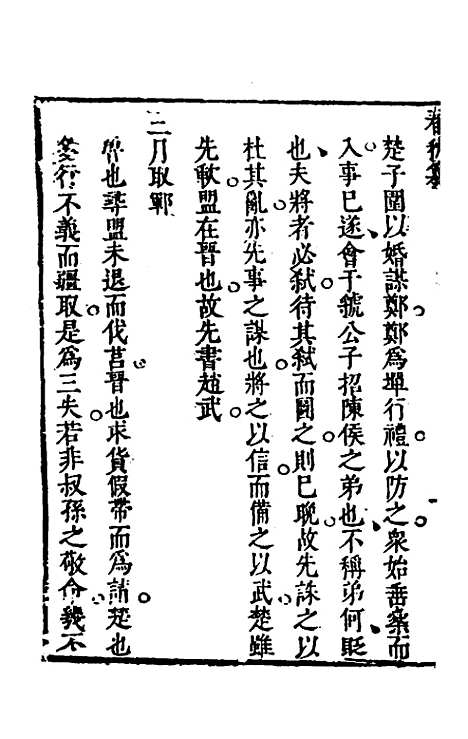 春秋
楚子圍以婚謀鄭鄭爲墠行禮以防之衆始垂櫜而
入事已遂會于虢公子招陳侯之弟也不稱弟何貶
也夫將者必弑待其弑而圖之則已晚故先誅之以
杜其亂亦先事之謀也將之以信而備之以武楚雖
先歃盟在晉也故先書趙武
三月取鄆
魯也尋盟未退而伐莒晉也求貨假帶而爲請楚也
妄行不義而疆取是爲三失若非叔孫之敬命義不